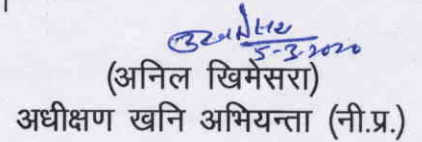 5-3-2020
(अनिल खिमेसरा)
अधीक्षण खनि अभियन्ता (नी.प्र.)